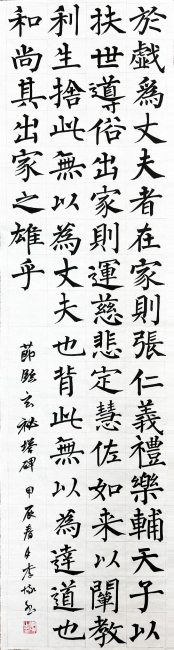 於戲為丈夫者在家則張仁義禮樂輔天子以
扶世導俗出家則運慈悲定慧佐如来以闡教
利生捨此無以為丈夫也背此無以為達道也
和尚其出家之雄乎
節臨玄祕塔碑 甲辰春月李